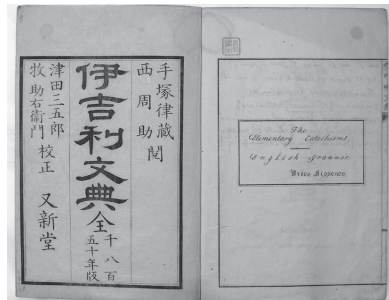 手塚律蔵
西周助 閲
伊吉利文典 全
千八百
五十年版
津田三五郎
牧助右衛門 校正
又新堂
The
Elementary Catechisms.
English Grammar.